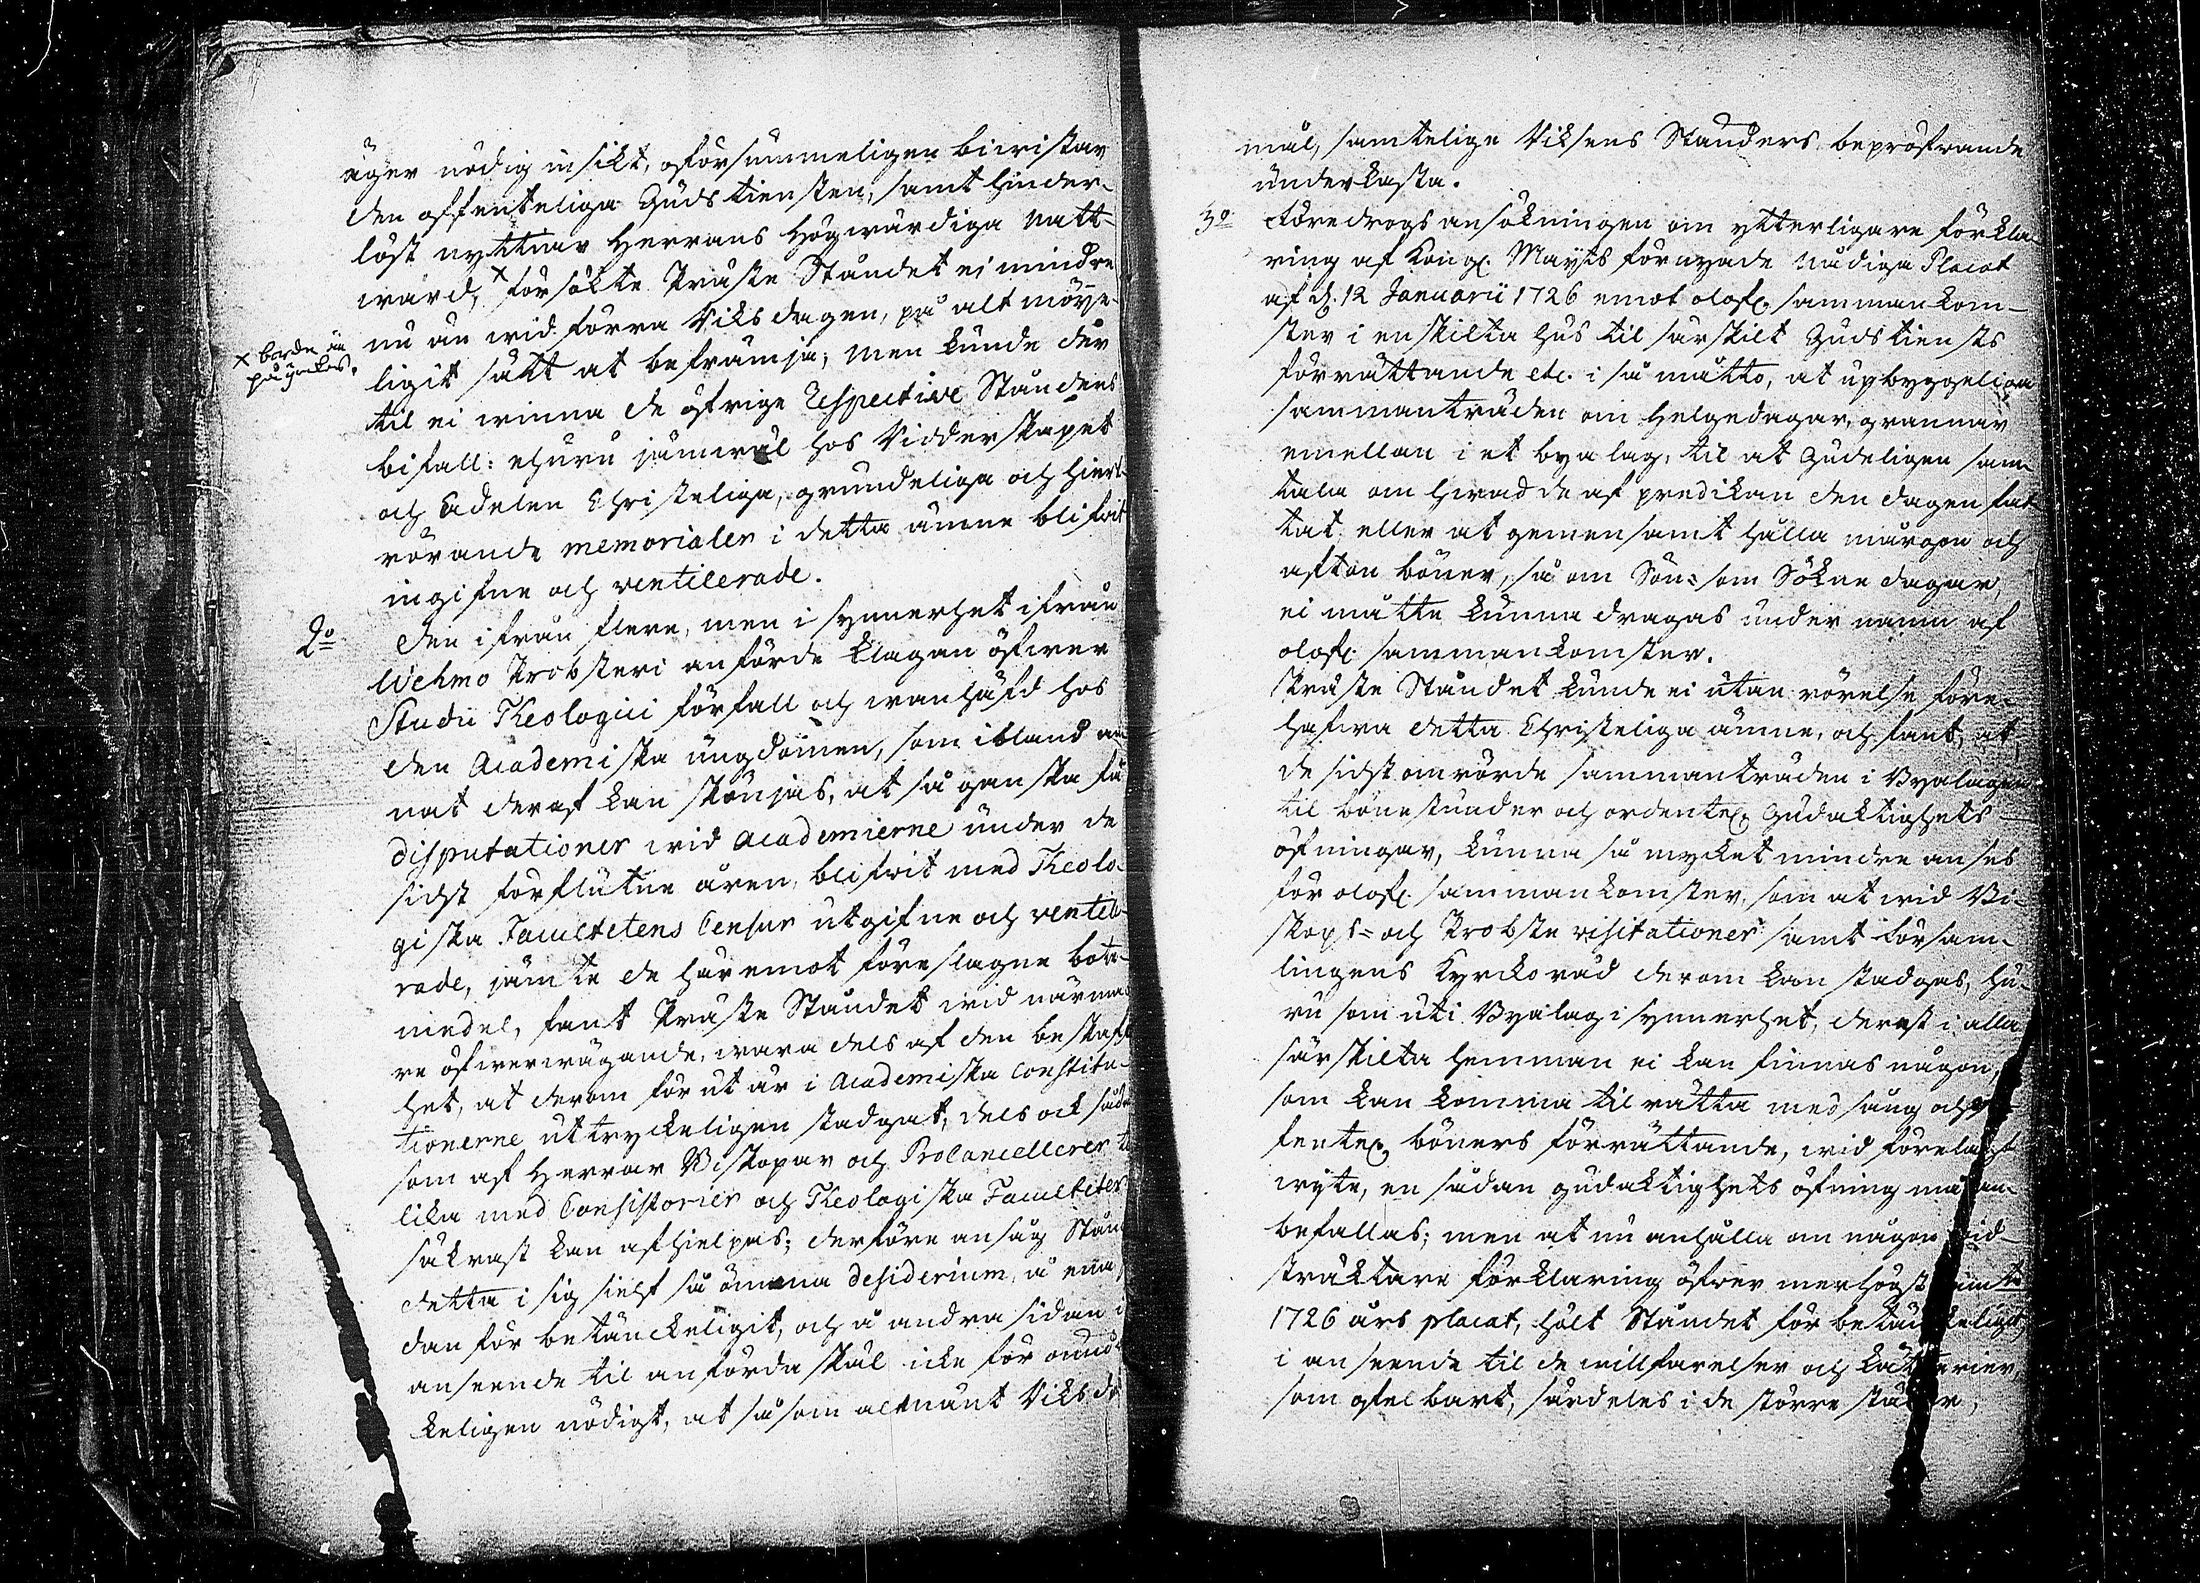 äger nödig insikt, oförsummeligen biwistar
den offenteliga Gudstiensten, samt hinder-
löst nyttnar Herrans Högwärdiga Natt-
ward, x försökte Präste Ståndet ej mindre
nu än wid förra Riksdagen, på alt möÿe-
x borde än
påÿrkas.
ligit sätt at befrämja; men kunde der
til ei winna de öfrige Respective Ståndens
bifall: ehuru jämwäl hos Ridderskapet
och Adelen Christeliga, grundeliga och hiert-
rörande memorialer i detta ämne blifwit
ingifne och ventilerade.
2o Den ifrån flere, men i synnerhet ifrån
Wehmo Probsteri anförde klagan öfwer
Studii Theologici förfall och wanhäfd hos
den Academiska ungdomen, som ibland an-
nat deraf kan skönjas, at så ganska få
disputationer wid Academierne under de
sidst förflutne åren, blifwit med Theolo-
giska Facultetens Censur utgifne och ventile-
rade, jämte de häremot föreslagne bote-
medel, fant Präste Ståndet wid närma-
re öfwerwägande, wara dels af den beskaffen-
het, at derom förut är i Academiska Constitu-
tionerne uttryckeligen stadgat, dels ock såda-
som af Herrar Biskopar och Procancellerer til-
lika med Consistorier och Theologiska Faculteter
säkrast kan afhielpas; derföre ansåg Stån-
detta i sig sielf så ömma desiderium, å ena si-
dan för betänckeligit, och å andra sidan i
anseende til anförda skäl icke för oundwi-
keligen nödigt, at såsom allmänt Riksda-
mål, samtelige Riksens Ständers bepröfwande
underkasta.
3o Föredrogs ansökningen om ytterligare förkla-
ring af Kongl. Mayts förnyade nådiga Placat
af d. 12 Januarii 1726 emot olofl. sammankom-
ster i enskilta hus til särskilt Gudstiensts
förrättande etc. i så måtto, at upbyggeliga
sammanträden om Helgedagar, grannar
emellan i et byalag, til at Gudeligen sam-
tala om hwad de af predikan den dagen fat-
tat; eller at gemensamt hålla morgon och
afton böner, så om Sön- som Söknedagar,
ei måtte kunna dragas under namn af
olofl. sammankomster.
Präste Ståndet kunde ei utan rörelse före-
hafwa detta Christeliga ämne, och fant, at
de sidst omrörde sammanträden i Byalagen
til bönestunder och ordentel. Gudaktighets
öfningar, kunna så mycket mindre anses
för olofl. sammankomster, som at wid Bi-
skops- och Probste visitationer samt försam-
lingens Kyrckoråd derom kan stadgas, hu-
ru som uti Byalag i synnerhet, derest i alla
särskilta hemman ei kan finnas någon,
som kan komma til rätta med sång och
fentel. böners förrättande, wid förelagt
wyte, en sådan gudaktighets öfning må an-
befallas; men at nu anhålla om någon wid-
sträktare förklaring öfwer merhögst
1726 års placat, hölt Ståndet för betänckeligit,
i anseende til de willfarelser och kätterier,
som ofelbart, särdeles i de större städer,